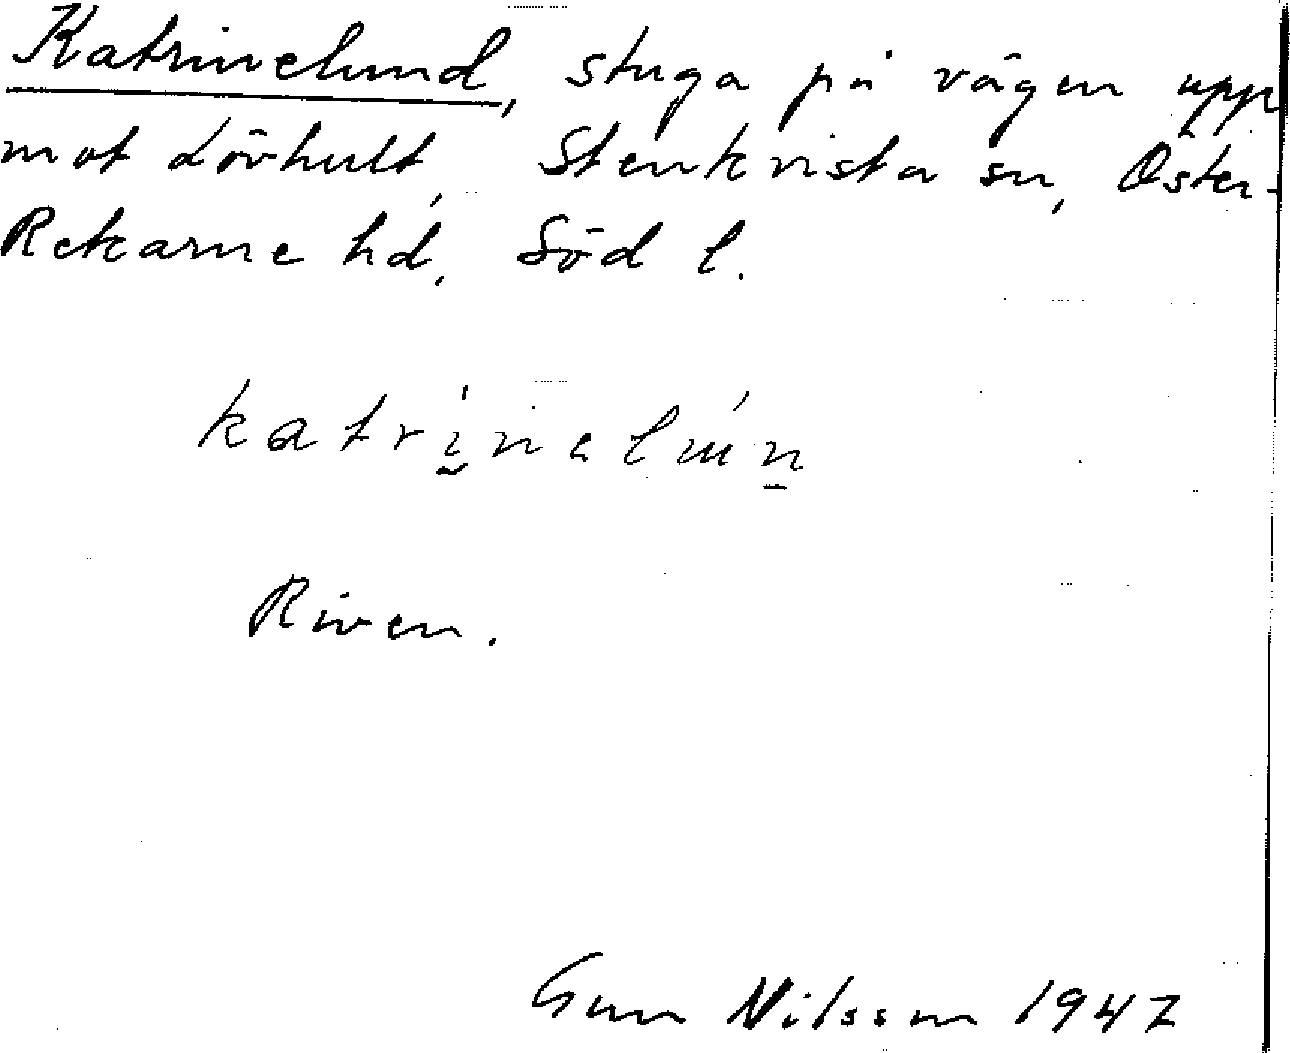 Katrinelund, stuga på vägen upp
mot Lövhult, Stenkvista sn, Öster-
Rekarne hd. Söd l.
katrinelún
Riven.
Gun Nilsson 1947